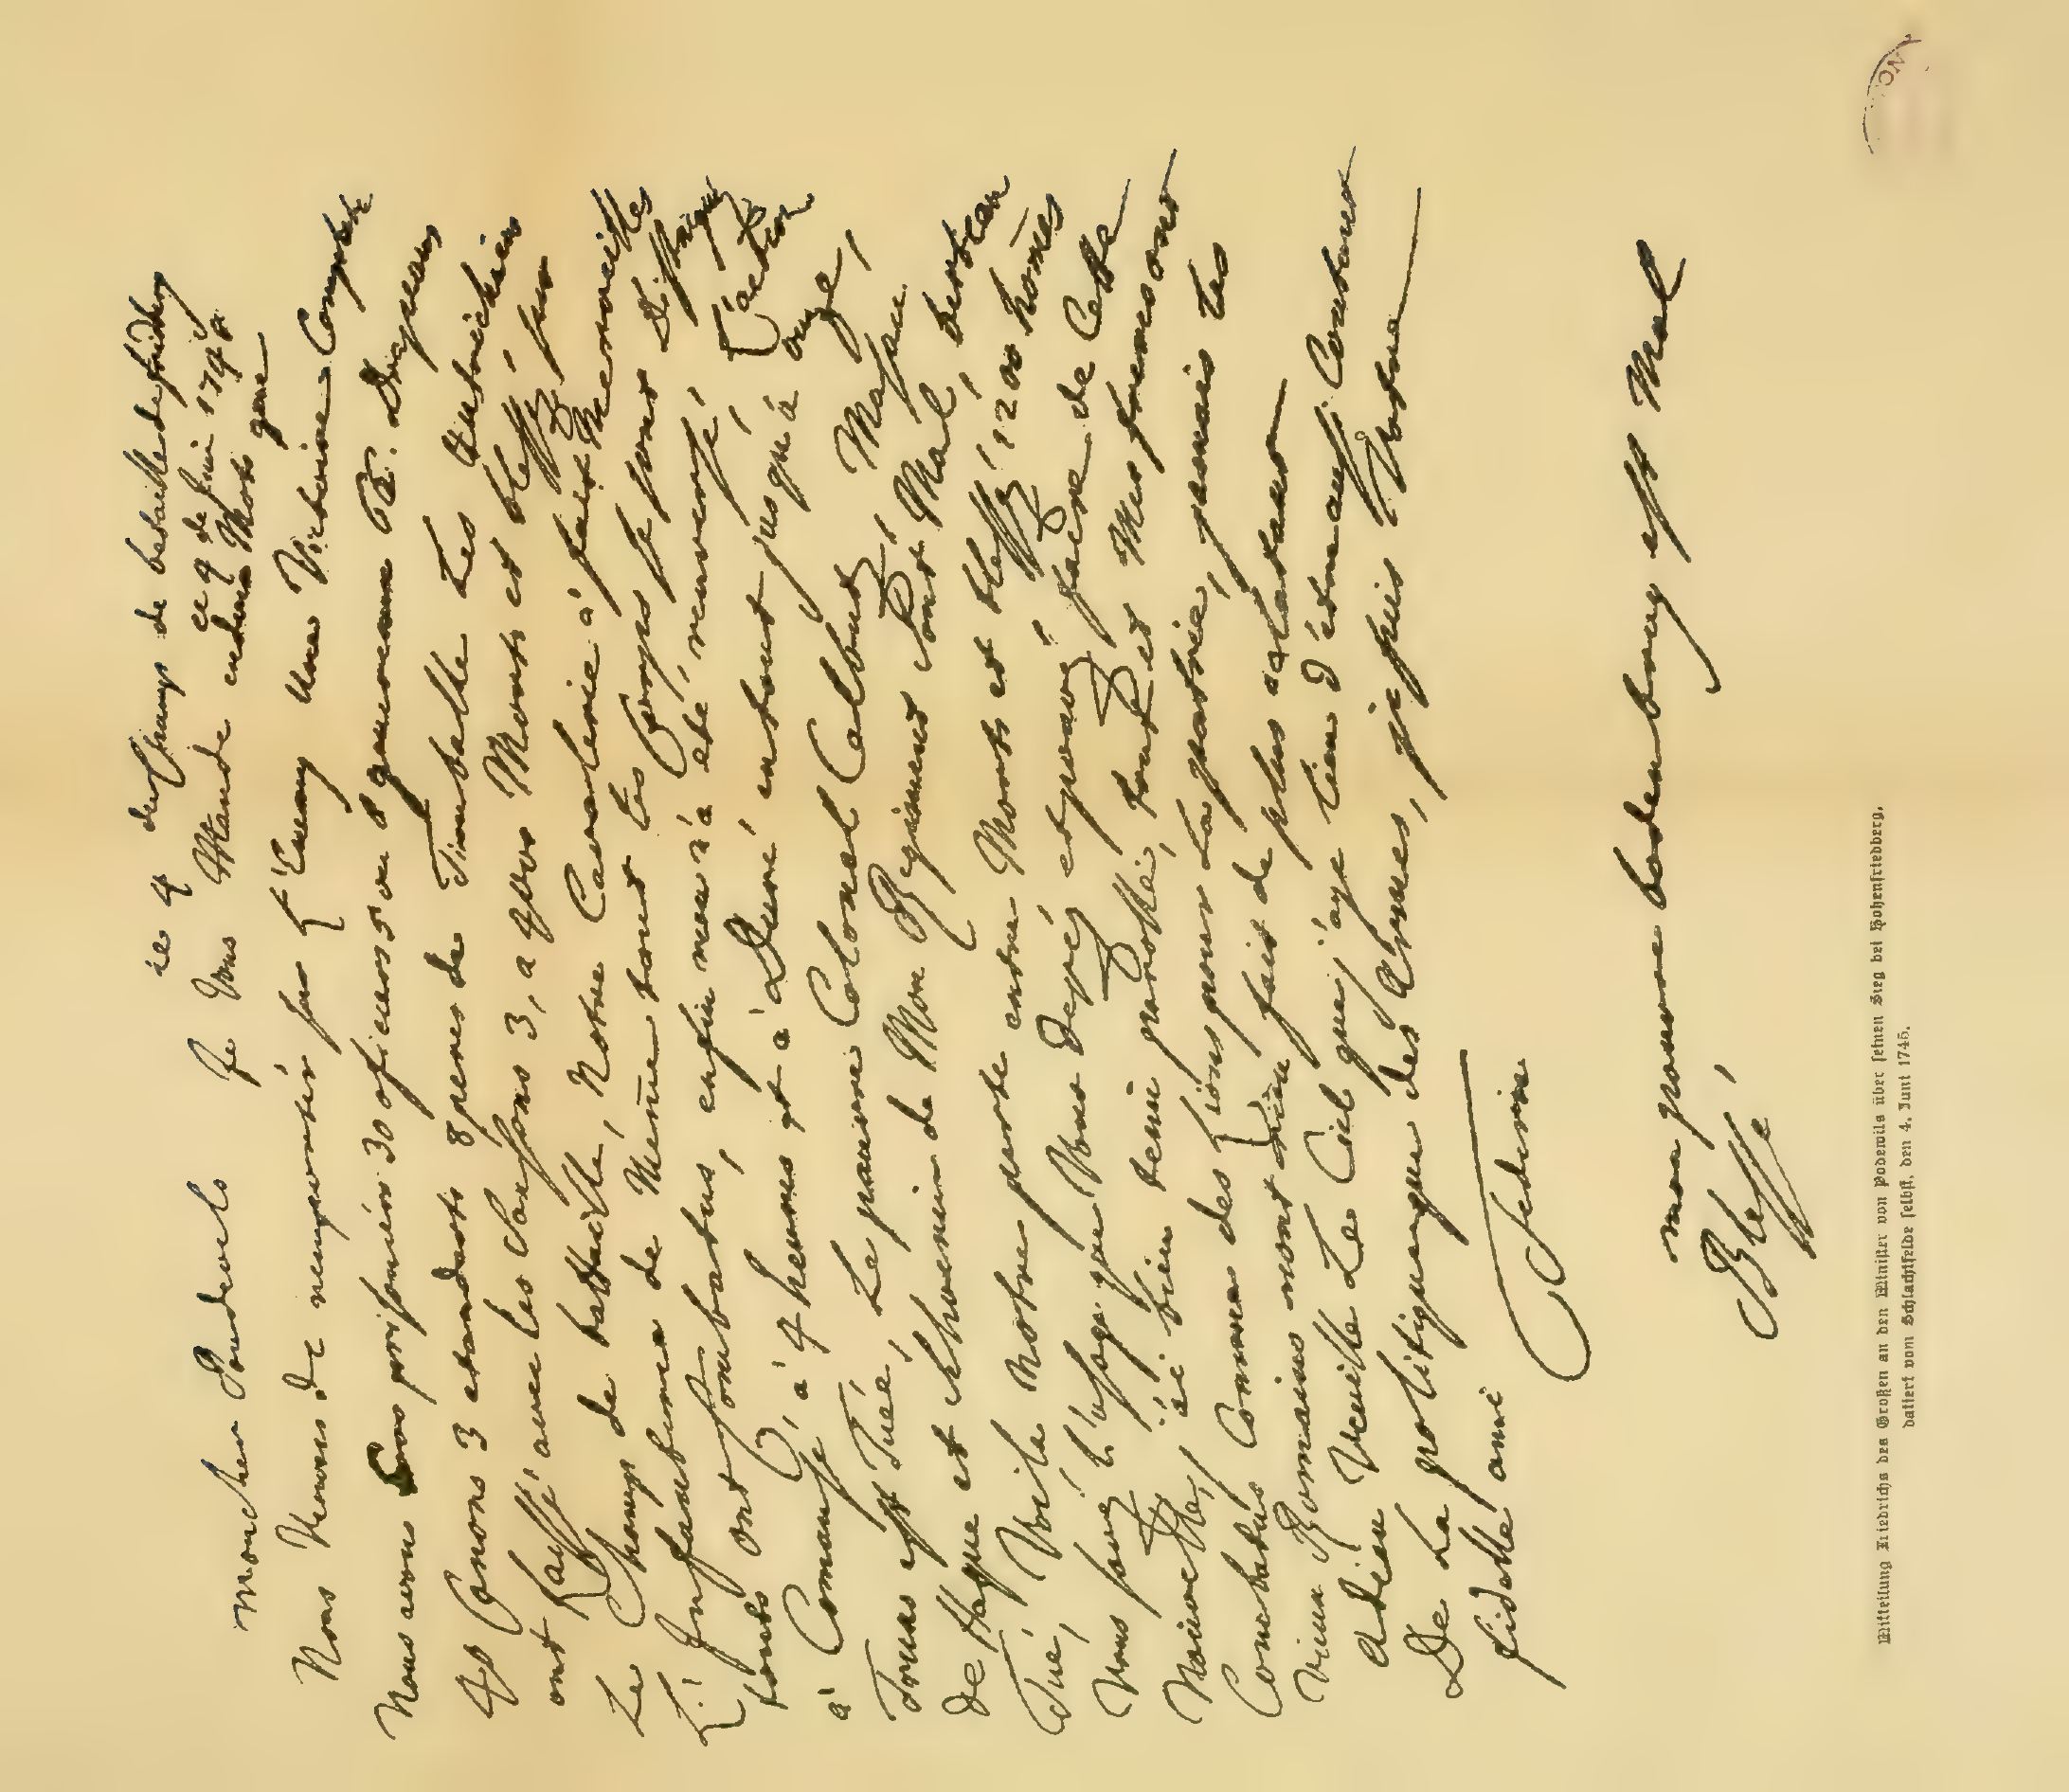 du Champ de bataille de fridberg
ce 4 de Juin 1745
Mon cher Podewils Je Vous Mande en deux Mots que
Nous Venons de remporter sur L'Enemy une Victoire Complete
Nous avons prisoniers 30 oficiers 5 ou 6 generaux 65. Drapeaux
40 Canons 3 etandarts 8 peres de Timballe Les Autrichiens
ont Laissé avec les Saxsons 3, a 4000 Morts et blessez sur
Le Champ de battaille, Notre Cavalerie a fait Merveilles
L'Infanterie de Meme tout les Corps se sont
tous ont Combatus, enfin rien n'a eté renversé, L'action
à Comansé à 4 heures et à Duré en tout jusqu'à onze,
Truas est Tué, Le pauvre Colonel Massau
de Haque et Schwerin de Mon Regiment sont Mal,
Tué, Voila Notre perte entre Morts et blessez 1200 homes
Vous savez l'usage que Vous Devez faire de Cette
Nouvelle, j'ai bien tenu parolle, et Mes frerres ont
Combatus Comme des Lions pour La patrie, jamais les
vieux Romains n'ont rien fait de plus eclatant
adieu Veuille Le Ciel que j'aye lieu d'etre aussi Contant
De La politique que des Armes, je suis Votre
fidelle ami
Federic
mon pauvre bodenbrug est Mal
Blessé
Mitteilung Friedrichs des Großen an den Minister von Podewils über seinen Sieg bei Hohenfriedberg,
datiert vom Schlachtfelde selbst, den 4. Juni 1745.